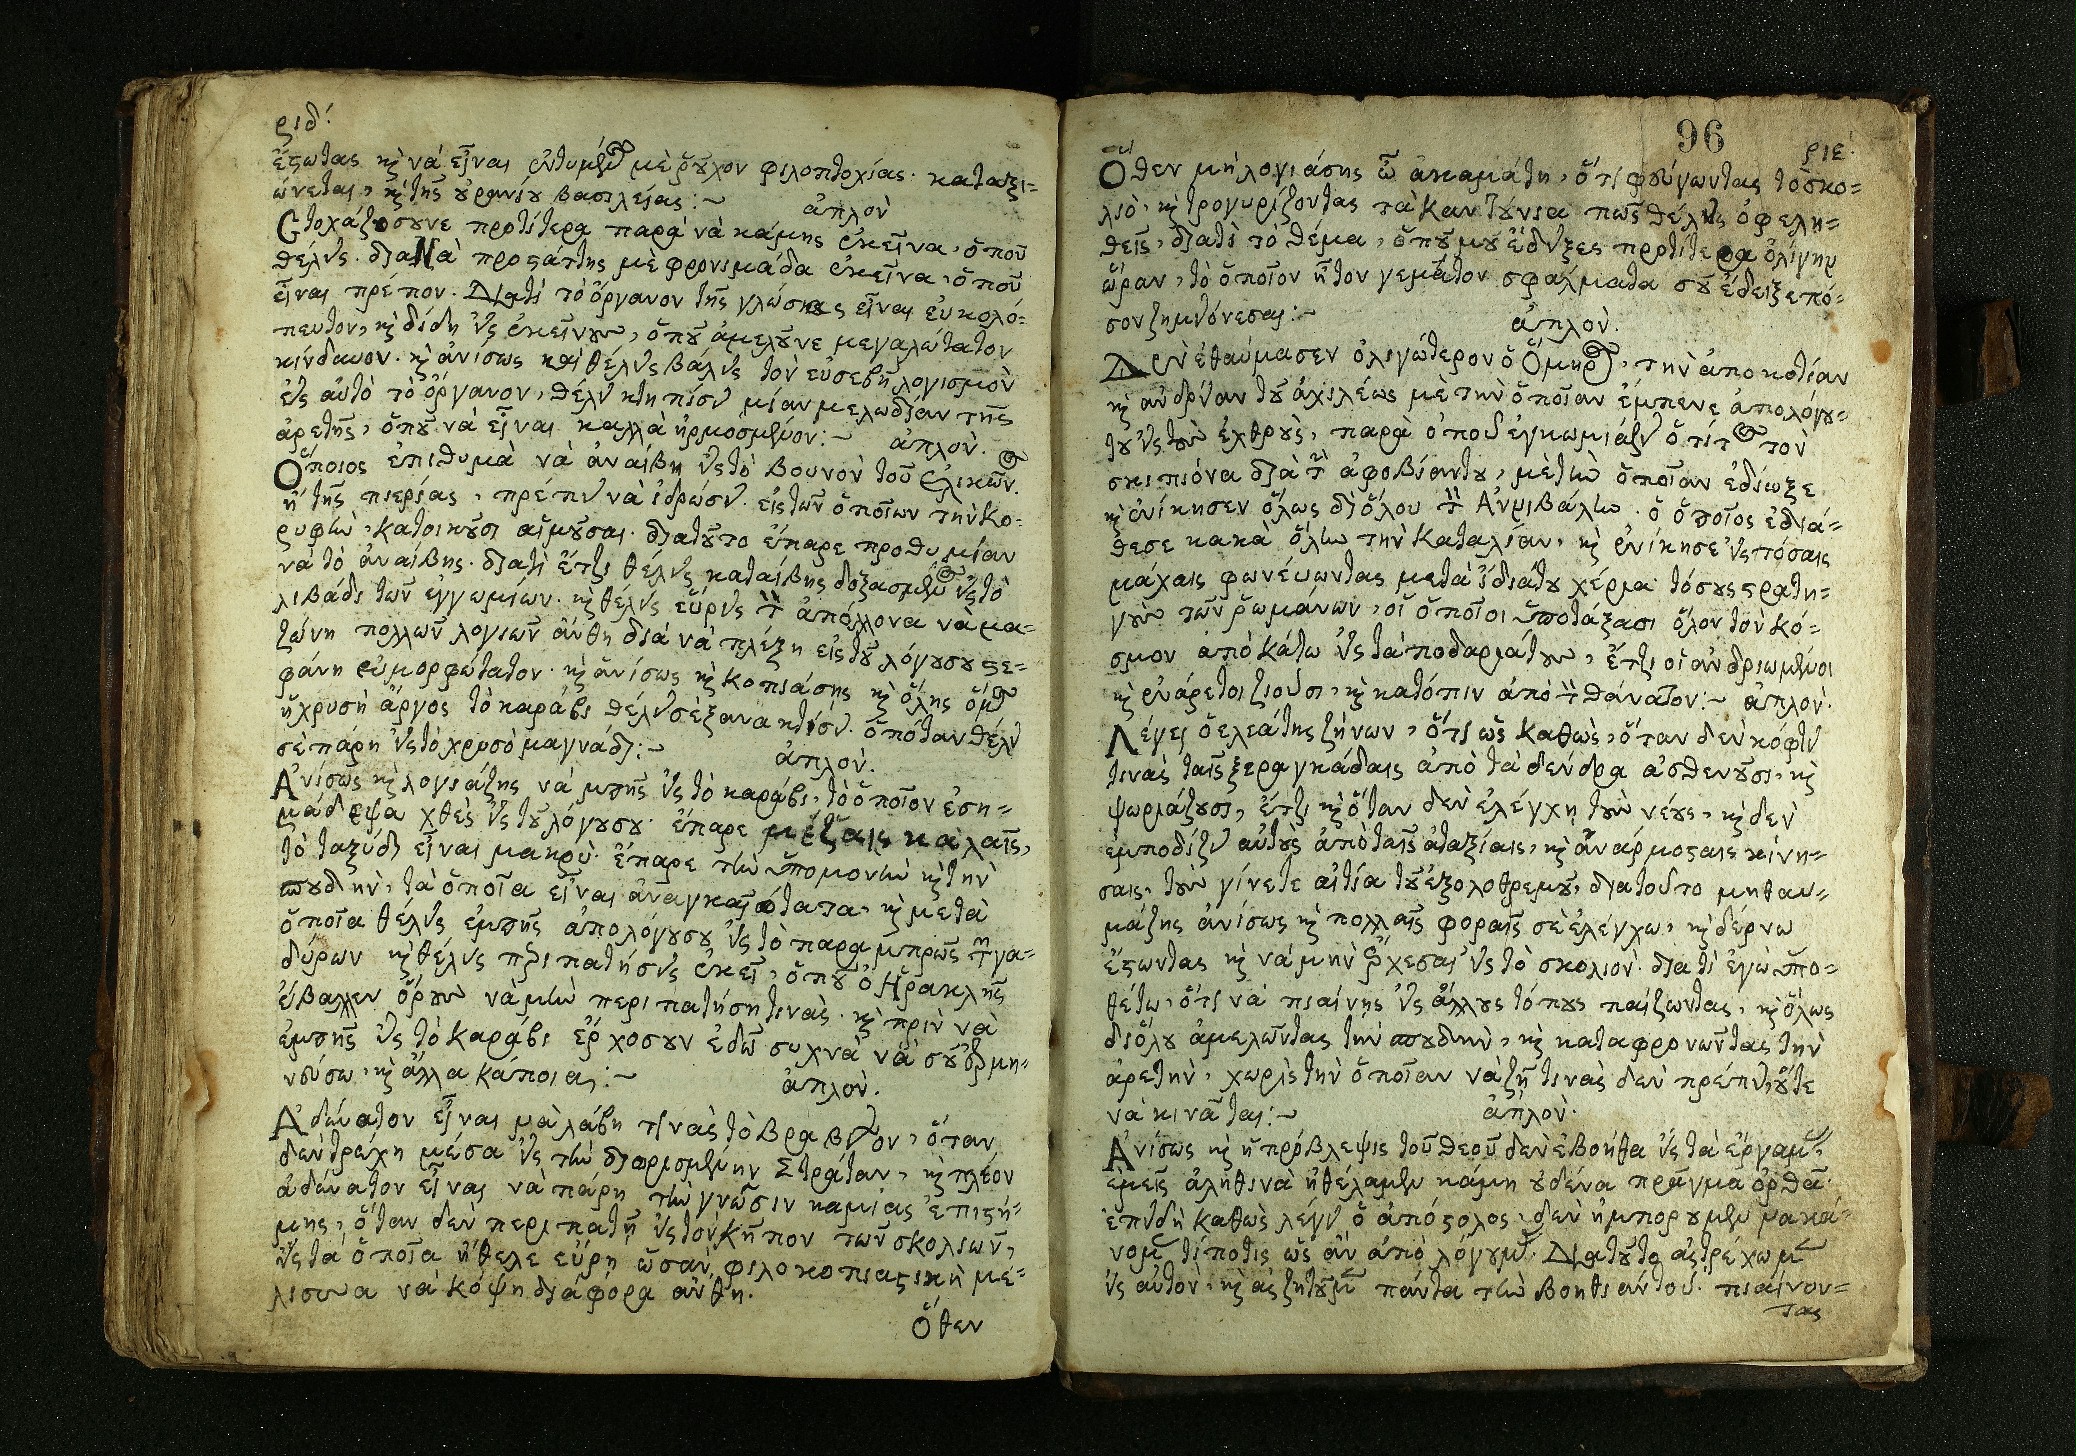 ριδ΄.
ἔστωτας κὶ νὰ εἶναι ἐντυμένος μὲ ῥοῦχον φιλοπτοχίας. καταξι-
ώνεται, κὶ τῆς οὐρανίου βασιλείας:~
ἁπλοῦν
Στοχάζοσουνε προτίτερα παρὰ νὰ κάμης ἐκεῖνα, ὁποῦ
θέλεις. διὰ Νὰ προστάττης μὲ φρονιμάδα ἐκεῖνα, ὁποῦ
εἶναι πρέπον. Διατὶ τὸ ὄργανον τῆς γλώσσας εἶναι εὐκολό-
κίνδυνον. κὶ ἀνίσως καὶ θέλεις βάλεις τὸν εὐσεβῆ λογισμὸν
εἰς αὐτὸ τὸ ὄργανον, θέλει κτηπίσει μίαν μελωδίαν τῆς
ἀρετῆς, ὁποῦ νὰ εἶναι καλλὰ ἡρμοσμένον:~ ἁπλοῦν.
Ὅποιος ἐπιθυμᾶ νὰ ἀναίβη εἰς τὸ βουνὸν τοῦ ἑλικῶνος
ἢ τῆς πιερίας, πρέπει νὰ ἱδρώσει. εἰς τῶν ὁποίων τὴν κο-
ρυφὴν, κατοικοῦσι αἱ μοῦσαι. διατοῦτο ἔπαρε προθυμίαν
νὰ τὸ ἀναίβης. διατὶ ἔτζι θέλεις καταίβης δοξασμένος εἰς τὸ
λιβάδι τῶν ἐγγωμίων. κὶ θέλεις εὕρεις τὸν ἀπόλλονα νὰ μα-
ζώνη πολλῶν λογιῶν ἄνθη διὰ νὰ πλέξη εἰς τοῦ λόγουσου στε-
φάνη εὐμορφώτατον. κὶ ἀνίσως κὶ κοπιάσης κὶ ὅλης ὅμως
ἡ χρυσὴ ἄργος τὸ καράβι θέλει σὲ ξανακτίσει. ὁπόταν θέλει
σὲ πάρη εἰς τὸ χρυσὸ μαγνάδι:~
ἁπλοῦν.
Ἀνίσως κὶ λογιάζης νὰ μπῆς εἰς τὸ καράβι, τὸ ὁποῖον ἐση-
μάδεψα χθὲς εἰς τοῦ λόγουσου. ἔπαρε μέζαις καλαῖς,
τὸ ταξύδι εἶναι μακρὺ. ἔπαρε τὴν ὑπομονὴν κὶ τὴν
σπουδὴν, τὰ ὁποῖα εἶναι ἀναγκαιότατα, κὶ μετὰ
ὁποῖα θέλεις ἐμπῆς ἀπολόγουσου εἰς τὸ παραμπρῶς τῆ γα-
δύρων κὶ θέλεις περιπατήσεις ἐκεῖ, ὁποῦ ὁ Ἡρακλῆς
ἔβαλλεν ὅρους νὰ μὴν περιπατήση τινὰς. κὶ πρὶν νὰ
ἐμπῆς εἰς τὸ καράβι ἔρχοσουν ἐδῶ συχνὰ νὰ σοῦ ἑρμη-
νεύσω, κὶ ἄλλα κάποια:~
ἁπλοῦν.
Ἀδύνατον εἶναι μὰ λάβη τινὰς τὸ βραβεῖον, ὅταν
δὲν τρέχη μέσα εἰς τὴν διορισμένην Στράταν, κὶ πλέον
ἀδύνατον εἶναι νὰ πάρη τὴν γνῶσιν καμίας ἐπιστή-
μης, ὅταν δὲν περιπατῆ εἰς τὸν κῆπον τῶν σκολιῶν,
εἰς τὰ ὁποῖα ἤθελε εὕρη ὡσὰν φιλοκοπιαστικὴ μέ-
λισσα νὰ κόψη διάφορα ἄνθη.
Ὅθεν
96
ριε΄.
Ὅθεν μὴ λογιάσης ὦ ἀκαμάτη, ὅτι φεύγωντας τὸ σκο-
λιὸ, κὶ τρογυρίζοντας τὰ καντούνια πῶς θέλεις ὀφελη-
θεῖς, διατὶ τὸ θέμα, ὁποῦ μου ἔδειξες προτίτερα ὀλίγην
ὥραν, τὸ ὁποῖον ἦτον γεμάτον σφάλματα σοῦ ἔδειξε πό-
σον ζημιόνεσαι:~
ἁπλοῦν.
Δὲν ἐθαύμασεν ὀλιγώτερον ὁ Ὅμηρος, τὴν ἀποκοτίαν
κὶ ἀνδρείαν τοῦ ἀχιλέως μὲ τὴν ὁποῖαν ἔμπενε ἀπολόγου-
του εἰς τοὺς ἐχθροὺς, παρὰ ὁποῦ ἐγκωμιάζει ὁ τίτος τὸν
σκιπιόνα διὰ τὴν ἀφοβίαντου, μὲ τὴν ὁποῖαν ἐδίωξε
κὶ ἐνίκησεν ὅλως διόλου τὸν Ἀννιβάλην. ὁ ὁποῖος ἐδιά-
θεσε κακὰ ὅλην τὴν Καταλίαν, κὶ ἐνίκησε εἰς πόσαις
μάχαις φωνέυωντας μετὰ ἴδιάτου χέρια τόσους στρατη-
γοὺς τῶν ῥωμάνων, οἱ ὁποῖοι ὑποτάξασι ὅλον τὸν κό-
σμον ἀπὸ κάτω εἰς τὰ ποδαριάτους, ἔτζι οἱ ἀνδριωμένοι
κὶ ἐνάρετοι ζιοῦσι, κὶ κατόπιν ἀπὸ τὸν θάνατον:~ ἁπλοῦν.
Λέγει ὁ ελεάτης ζήνων, ὅτι ὡς καθὼς, ὅταν δεν κόφτει
τινὰς ταῖς ξεραγκάδαις ἀπὸ τὰ δένδρα ἀσθενοῦσι, κὶ
ψωριάζουσι, ἔτζι κὶ ὅταν δὲν ἐλέγχη τοὺς νέους, κὶ δὲν
ἐμποδίζει αὐτοὺς ἀπὸ ταῖς ἀταξίαις, κὶ ἀναρμοσταις κίνη-
σαις, τοὺς γίνετε αἰτία τοῦ ἐξολοθρεμοῦ, διατοῦτο μη θαυ-
μάζης ἀνίσως κὶ πολλαῖς φοραῖς σὲ ἐλέγχω, κὶ δέρνω
ἔστωντας κὶ νὰ μὴν ἔρχεσαι εἰς τὸ σκολιὸν. διατὶ ἐγὼ ὑπο-
θέτω, ὅτι νὰ πιαίνης εἰς ἄλλους τόπους παίζωντας, κὶ ὅλως
διόλου ἀμελῶντας τὴν σπουδὴν, κὶ καταφρονῶντας τὴν
ἀρετὴν, χωρὶς τὴν ὁποῖαν νὰ ζῆ τινὰς δεν πρέπει, οὔτε
νὰ κινᾶται:~
ἁπλοῦν.
Ἀνίσως κὶ ἡ πρόβλεψις τοῦ θεοῦ δὲν ἐβοήθα εἰς τὰ ἔργαμας,
ἐμεῖς ἀληθινὰ ἠθέλαμεν κάμη οὐδένα πρᾶγμα ὀρθᾶ.
ἐπειδὴ καθὼς λέγει ὁ ἀπόστολος, δὲν ἠμπορουμεν νὰ κά-
νομεν τίποτις ὡς ἂν ἀπὸ λόγουμας. Διατοῦτο ἀς τρέχωμεν
εἰς αὐτὸν, κὶ ἀς ζητοῦμεν πάντα τὴν βοηθιάντου. πιαίνον-
τας